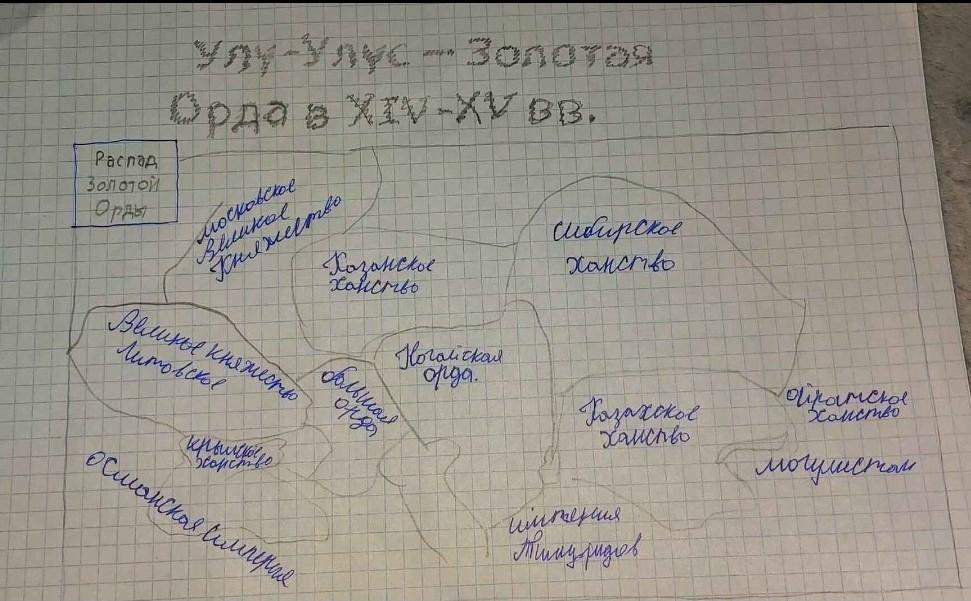 Улу-Улус — Золотая
Орда в XIV-XV вв.
Распад
Золотой
Орды
Московское
Великое
Княжество
Казанское
ханство
Сибирское
ханство
Великое княжество
Литовское
Большая
орда
Ногайская
орда.
Казахское
ханство
Ойратское
ханство
Могулистан
Крымское
ханство
Османская Империя
империя
Тимуридов